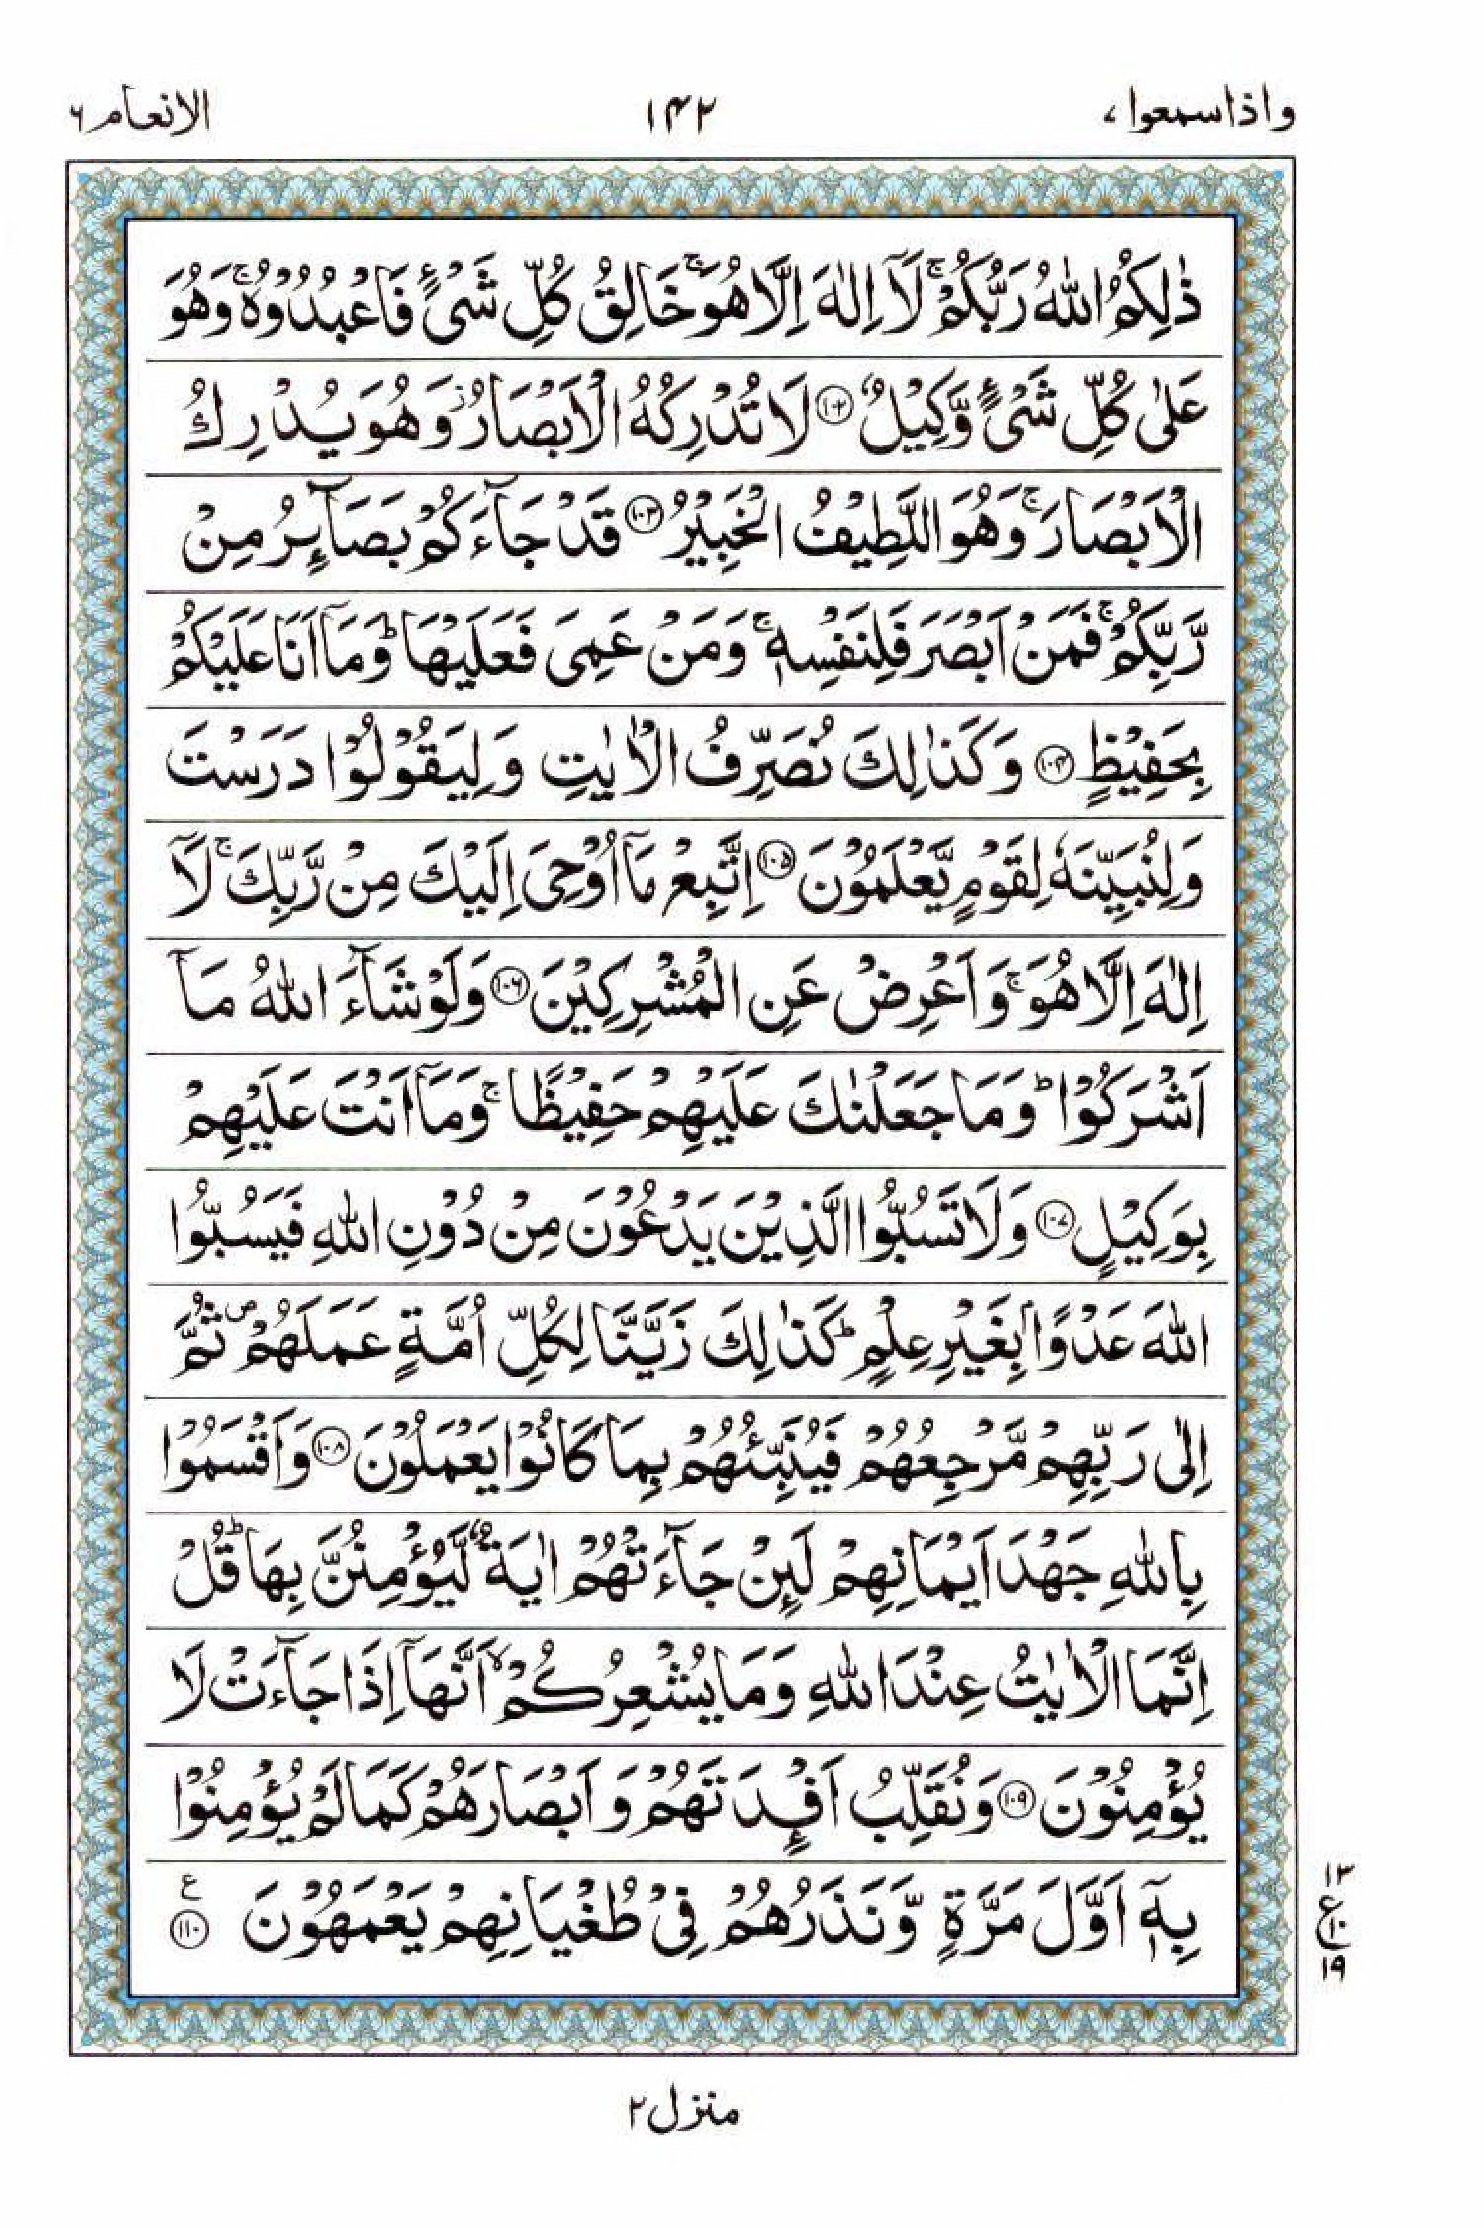 واذاسمعوا ۷ ۱۴۲ الانعام ۶
ذٰلِكُمُ اللّٰهُ رَبُّكُمْ ۚ لَاۤ اِلٰهَ اِلَّا هُوَ ۚ خَالِقُ كُلِّ شَىْءٍ فَاعْبُدُوْهُ ۚ وَهُوَ
عَلٰى كُلِّ شَىْءٍ وَّكِيْلٌ ۝۱۰۲ لَا تُدْرِكُهُ الْاَبْصَارُ ؗ وَهُوَ يُدْرِكُ
الْاَبْصَارَ ۚ وَهُوَ اللَّطِيْفُ الْخَبِيْرُ ۝۱۰۳ قَدْ جَآءَكُمْ بَصَآئِرُ مِنْ
رَّبِّكُمْ ۚ فَمَنْ اَبْصَرَ فَلِنَفْسِهٖ ۚ وَمَنْ عَمِىَ فَعَلَيْهَا ؕ وَمَاۤ اَنَا عَلَيْكُمْ
بِحَفِيْظٍ ۝۱۰۴ وَكَذٰلِكَ نُصَرِّفُ الْاٰيٰتِ وَلِيَقُوْلُوْا دَرَسْتَ
وَلِنُبَيِّنَهٗ لِقَوْمٍ يَّعْلَمُوْنَ ۝۱۰۵ اِتَّبِعْ مَاۤ اُوْحِىَ اِلَيْكَ مِنْ رَّبِّكَ ۚ لَاۤ
اِلٰهَ اِلَّا هُوَ ۚ وَاَعْرِضْ عَنِ الْمُشْرِكِيْنَ ۝۱۰۶ وَلَوْ شَآءَ اللّٰهُ مَاۤ
اَشْرَكُوْا ؕ وَمَا جَعَلْنٰكَ عَلَيْهِمْ حَفِيْظًا ۚ وَمَاۤ اَنْتَ عَلَيْهِمْ
بِوَكِيْلٍ ۝۱۰۷ وَلَا تَسُبُّوا الَّذِيْنَ يَدْعُوْنَ مِنْ دُوْنِ اللّٰهِ فَيَسُبُّوا
اللّٰهَ عَدْوًۢا بِغَيْرِ عِلْمٍ ؕ كَذٰلِكَ زَيَّنَّا لِكُلِّ اُمَّةٍ عَمَلَهُمْ ۪ ثُمَّ
اِلٰى رَبِّهِمْ مَّرْجِعُهُمْ فَيُنَبِّئُهُمْ بِمَا كَانُوْا يَعْمَلُوْنَ ۝۱۰۸ وَاَقْسَمُوْا
بِاللّٰهِ جَهْدَ اَيْمَانِهِمْ لَئِنْ جَآءَتْهُمْ اٰيَةٌ لَّيُؤْمِنُنَّ بِهَا ؕ قُلْ
اِنَّمَا الْاٰيٰتُ عِنْدَ اللّٰهِ وَمَا يُشْعِرُكُمْ ۙ اَنَّهَاۤ اِذَا جَآءَتْ لَا
يُؤْمِنُوْنَ ۝۱۰۹ وَنُقَلِّبُ اَفْـِٕدَتَهُمْ وَاَبْصَارَهُمْ كَمَا لَمْ يُؤْمِنُوْا
بِهٖۤ اَوَّلَ مَرَّةٍ وَّنَذَرُهُمْ فِىْ طُغْيَانِهِمْ يَعْمَهُوْنَ ۝۱۱۰ ع
۱۳
ع ۱۰
۱۹
منزل ۲